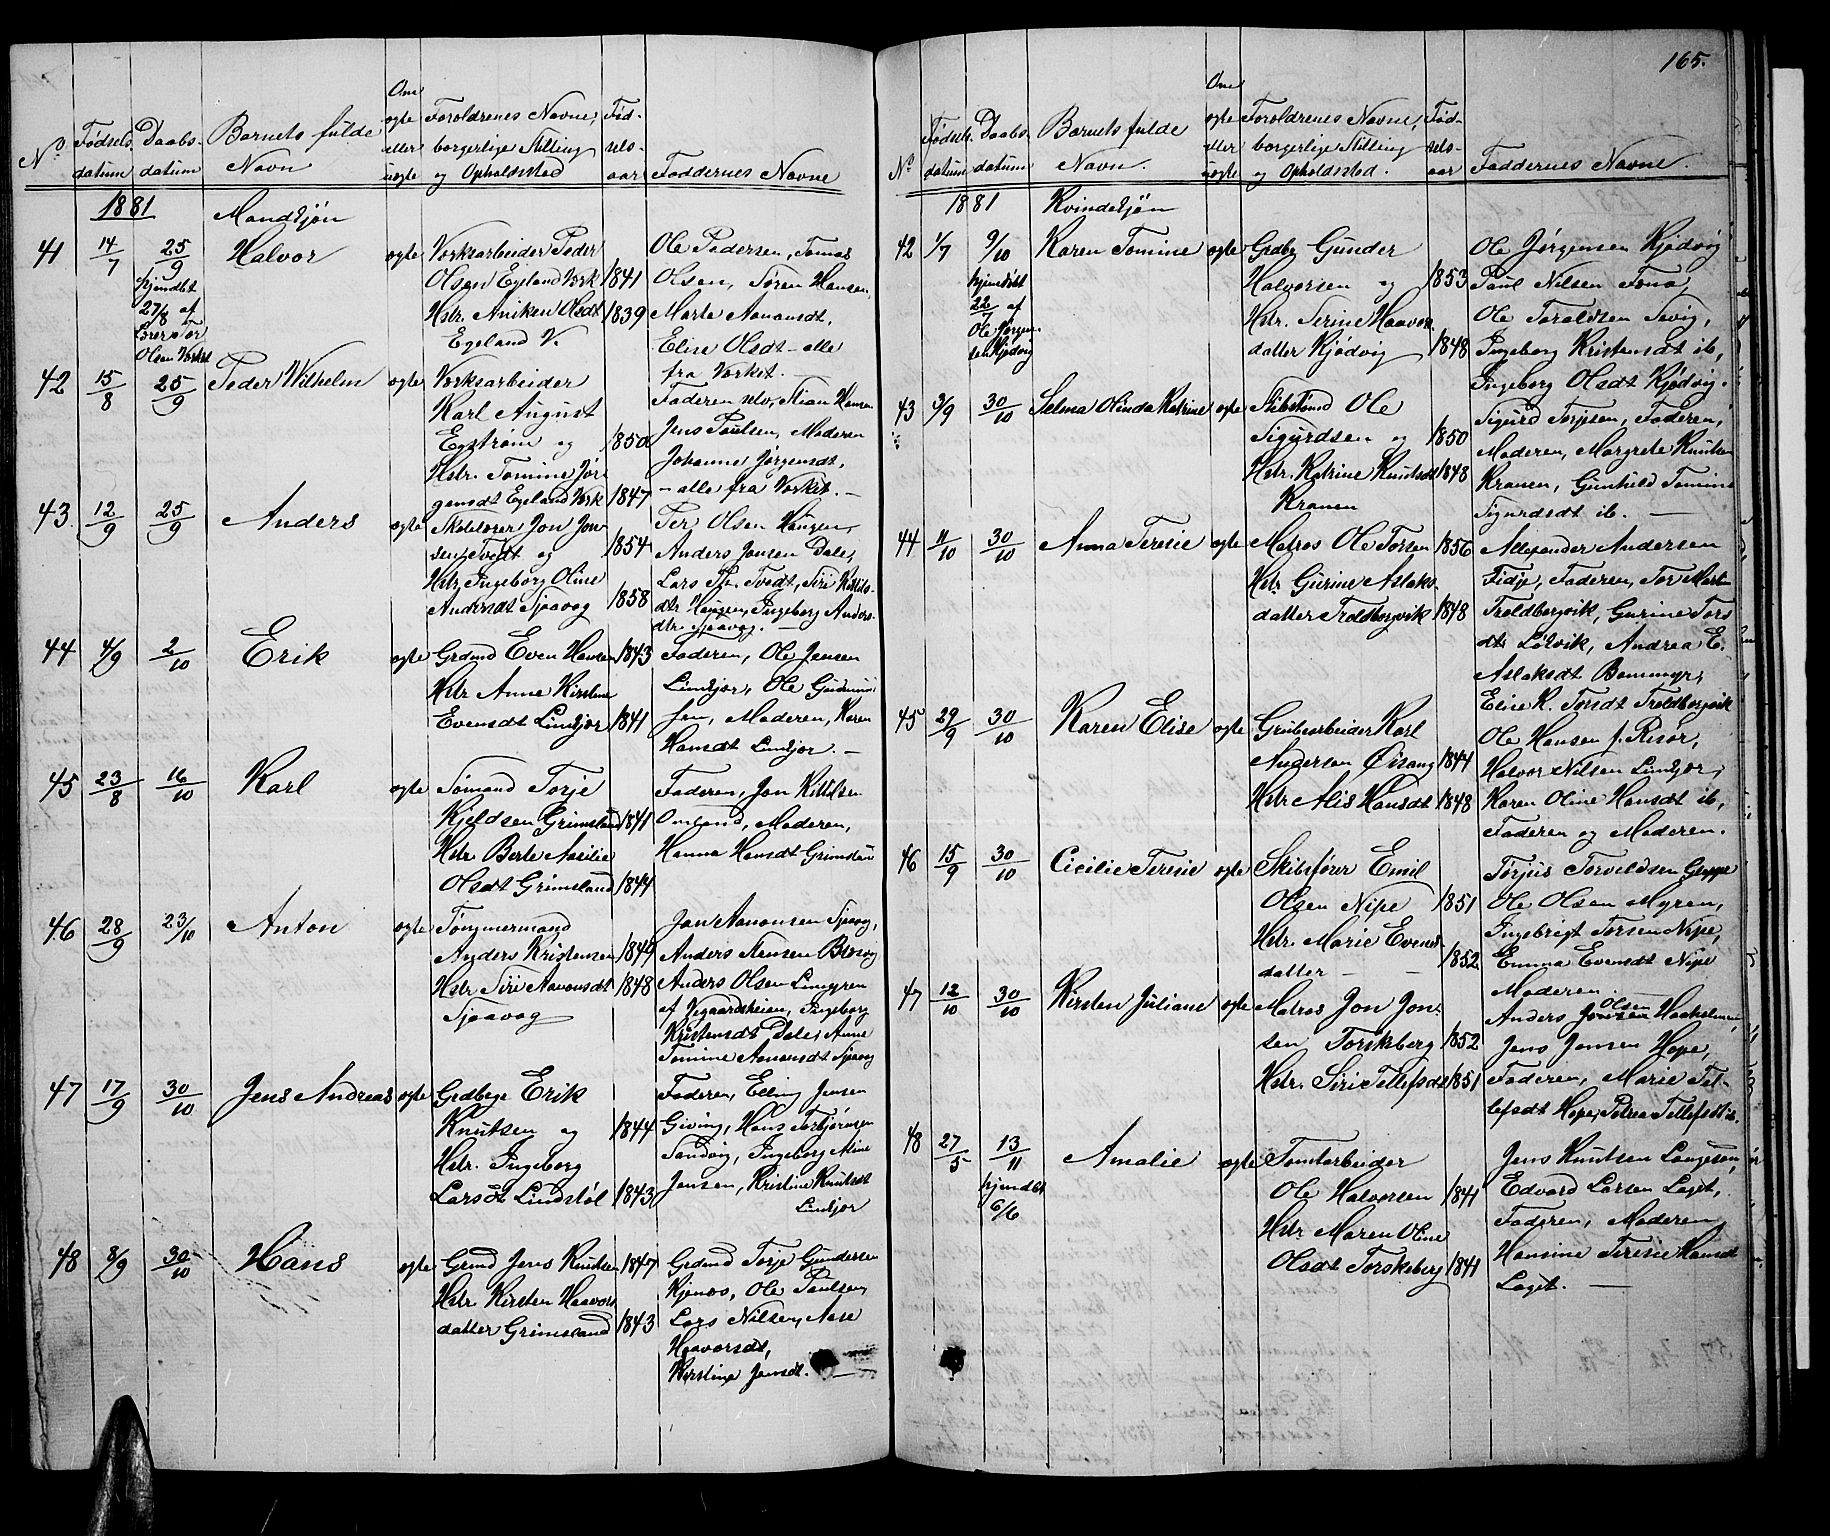 No.
Fødsels-
datum
Daabs-
datum
Barnets fulde
Navn
Om
ægte
eller
uægte
Forældrenes Navne,
borgerlige Stilling
og Opholdssted
Fød-
sels-
aar
Faddernes Navne
1881
Mandkjøn
41
14/7
25/9
hjemdøbt
27/8 af
Olsen Verket
Halvor
ægte
Verksarbeider Peder
Olsen Egeland Verk 1841
Hstr. Aniken Olsdt 1839
Egeland V.
Ole Pedersen, Tomas
Olsen, Søren Hansen,
Marte Aanonsdt,
Elise Olsdt – alle
fra Verket. –
42
15/8
25/9
Peder Wilhelm
ægte
Verksarbeider
Karl August
Egstrøm og 1850
Hstr. Tomine Jør-
gensdt Egeland Verk 1847
Faderen selv, Stian Hansen
Jens Paulsen, Moderen
Johanne Jørgensdt,
– alle fra Verket. –
43
12/9
25/9
Anders
ægte
Skolelærer Jon Jon-
sen Tvedt og 1854
Hstr. Ingeborg Oline
Andersdt Sjaavaag 1858
Per Olsen Haugen,
Anders Jensen Dale,
Lars Th. Tvedt, Siri Kittils-
dtr. Haugen, Ingeborg Anders-
dtr. Sjaavaag. –
44
4/9
2/10
Erik
ægte
Grdmd Even Hansen 1843
Hstr Anne Kirstine
Evensdt Lindjor 1841
Faderen, Ole Jensen
Lindjor, Ole Gudmun-
sen, Moderen, Karen
Hansdt Lindjor. –
45
23/8
16/10
Karl
ægte
Sømand Torje
Kjeldsen Grimsland 1841
Hstr. Berte Aasilie
Olsdt Grimsland 1844
Faderen, Jon Kittilsen
Omland, Moderen,
Hanna Hansdt Grimsland
46
28/9
23/10
Anton
ægte
Tømmermand
Anders Kristensen 1849
Hstr Siri Aanonsdt 1848
Sjaavaag
Jon Aanonsen Sjaavaag,
Anders Stensen
Anders Olsen Lindgren
af Vegaardsheien, Ingeborg
Kristensdt Dale, Anne
Tomine Aanonsdt Sjaavaag
47
17/9
30/10
Jens Andreas
ægte
Grdbyge Erik
Knutsen og 1844
Hstr. Ingeborg
Larsdt Lindstøl 1843
Faderen, Elling Jensen
Giving, Hans Torbjørnsen
Sandvig, Ingeborg Aline
Jensen, Kristine Knutsdt
Lindjor
48
8/9
30/10
Hans
ægte
Grmd Jens Knutsen 1847
Hstr Kirsten Haavors-
datter Grimsland 1843
Grdmd Torje Gundersen
Kjenes, Ole Paulsen,
Lars Nilsen, Aase
Haavorsdt,
Kirstine Jensdt. –
165.
No.
Fødsels-
datum
Daabs-
datum
Barnets fulde
Navn.
Om
ægte
eller
uægte
Forældrenes Navne,
borgerlige Stilling
og Opholdssted.
Fød-
sels-
aar
Faddernes Navne.
1881
Kvindekjøn
42
1/7
9/10
hjemdøbt
22/7 af
Ole Jørgen-
sen Kjødvig
Karen Tomine
ægte
Grdbr Gunder
Halvorsen og 1853
Hstr. Serine Haavor-
datter Kjødvig 1848
Ole Jørgensen Kjødvig
Paul Nilsen
Ole Taraldsen Sævig,
Ingeborg Kristensdt ib,
Ingeborg Olsdt Kjødvig.
43
3/9
30/10
Selma Olinda Katrine
ægte
Skibstømd Ole
Sigurdsen og 1850
Hstr. Katrine Knutsdt 1848
Kranen
Sigurd Torjesen, Faderen,
Moderen, Margrete Knutsen
Kranen, Gunhild Tomine
Sigurdsdt ib. –
44
11/10
30/10
Anna Terese
ægte
Matros Ole Torsen 1856
Hstr Gurine Aslaks-
datter Troldbergvik 1848
Allexander Andersen
Fidje, Faderen, Tor Marten
Troldbergvik, Gurine Tors
dtr Lølvik, Andrea E.
Aslaksdt Bommyr,
Eline K. Torsdt Troldbergvik
45
29/9
30/10
Karen Elise
ægte
Grubearbeider Karl
Andersen Øisang 1844
Hstr Alis Hansdt 1848
Ole Hansen f. Risør,
Halvor Nilsen Lindjor,
Karen Oline Hansdt ib,
Faderen og Moderen.
46
15/9
30/10
Cicilie Terese
ægte
Skibsfører Emil
Olsen Nipe 1851
Hstr. Marie Evens-
datter – – 1852
Torjus Torvildsen
Ole Olsen Myren,
Ingebrigt Torsen Nipe,
Emma Evensdt Nipe
Moderen. –
47
12/10
30/10
Kirsten Juliane
ægte
Matros Jon Jon-
sen Torskberg 1852
Hstr. Siri Tellefsdt 1851
Olsen
Anders Jonsen
Jens Jensen Hope,
Faderen, Marie Tel-
lefsdt Hope, Petrea Tellefsdt ib.
48
27/5
13/11
hjemdøbt
6/6
Amalie
ægte
Tomtarbeider
Ole Halvorsen 1841
Hstr Maren Oline
Olsdt Torskeberg 1841
Jens Knutsen Langesen,
Edvard Larsen Laget,
Faderen, Moderen
Hansine Terese Hansdt
Laget. –